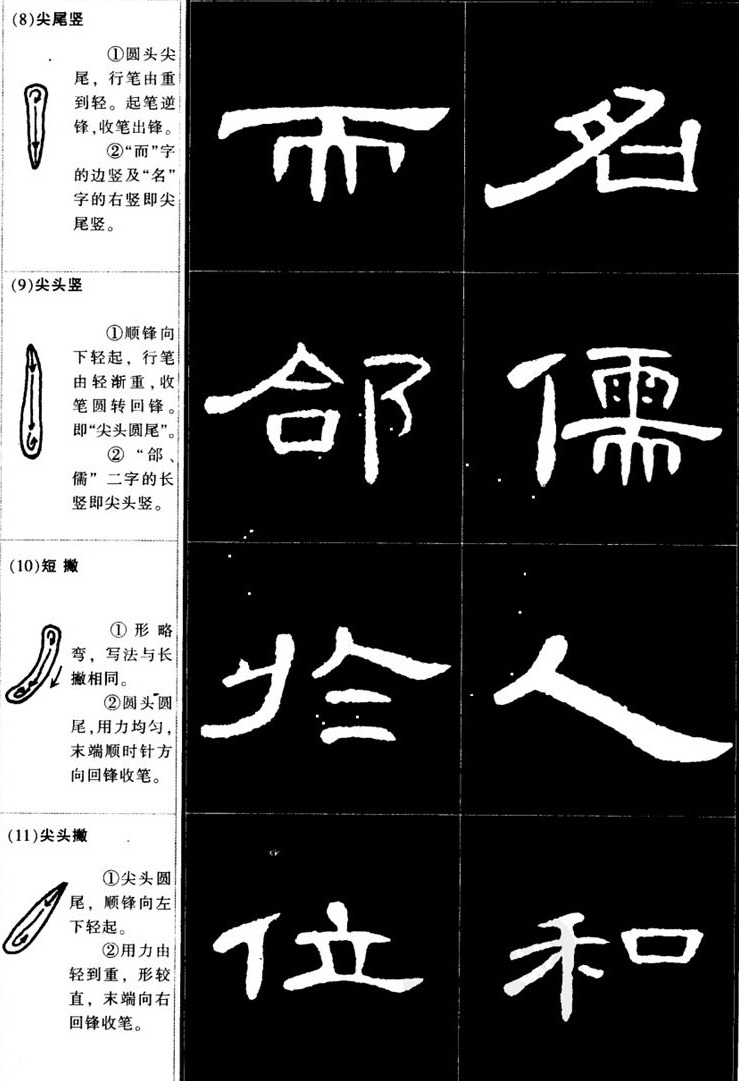 (8)尖尾竖
①圆头尖
尾，行笔由重
到轻。起笔逆
锋,收笔出锋。
②“而”字
的边竖及“名”
字的右竖即尖
尾竖。
而 名
(9)尖头竖
①顺锋向
下轻起，行笔
由轻渐重,收
笔圆转回锋。
即“尖头圆尾”。
②“郃、
儒”二字的长
竖即尖头竖。
郃 儒
(10)短撇
①形略
弯，写法与长
撇相同。
②圆头圆
尾,用力均匀,
末端顺时针方
向回锋收笔。
於 人
(11)尖头撇
①尖头圆
尾，顺锋向左
下轻起。
②用力由
轻到重，形较
直，末端向右
回锋收笔。
位 和